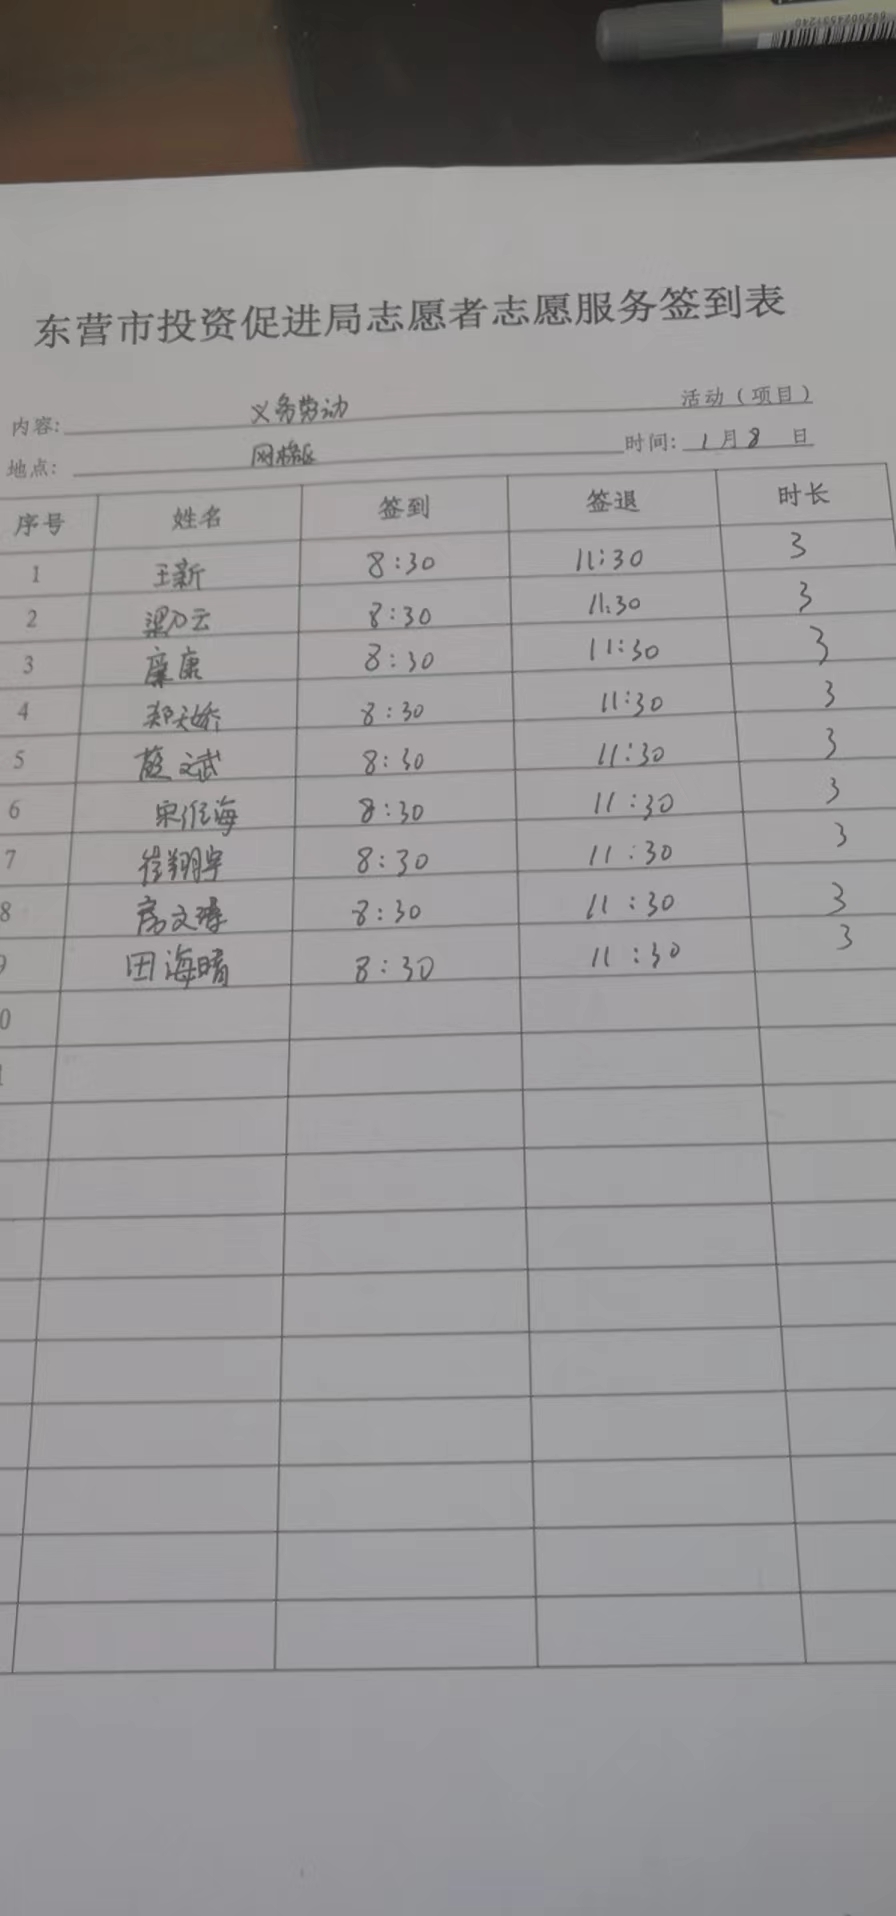 东营市投资促进局志愿者志愿服务签到表
内容: 义务劳动 活动（项目）
地点: 网格区 时间: 1月8日
序号 姓名 签到 签退 时长
1 王新 8:30 11:30 3
2 8:30 11:30 3
3 康 8:30 11:30 3
4 郑天娇 8:30 11:30 3
5 薛文斌 8:30 11:30 3
6 宋 海 8:30 11:30 3
7 崔翔宇 8:30 11:30 3
8 房文 8:30 11:30 3
9 田海晴 8:30 11:30 3
0
1